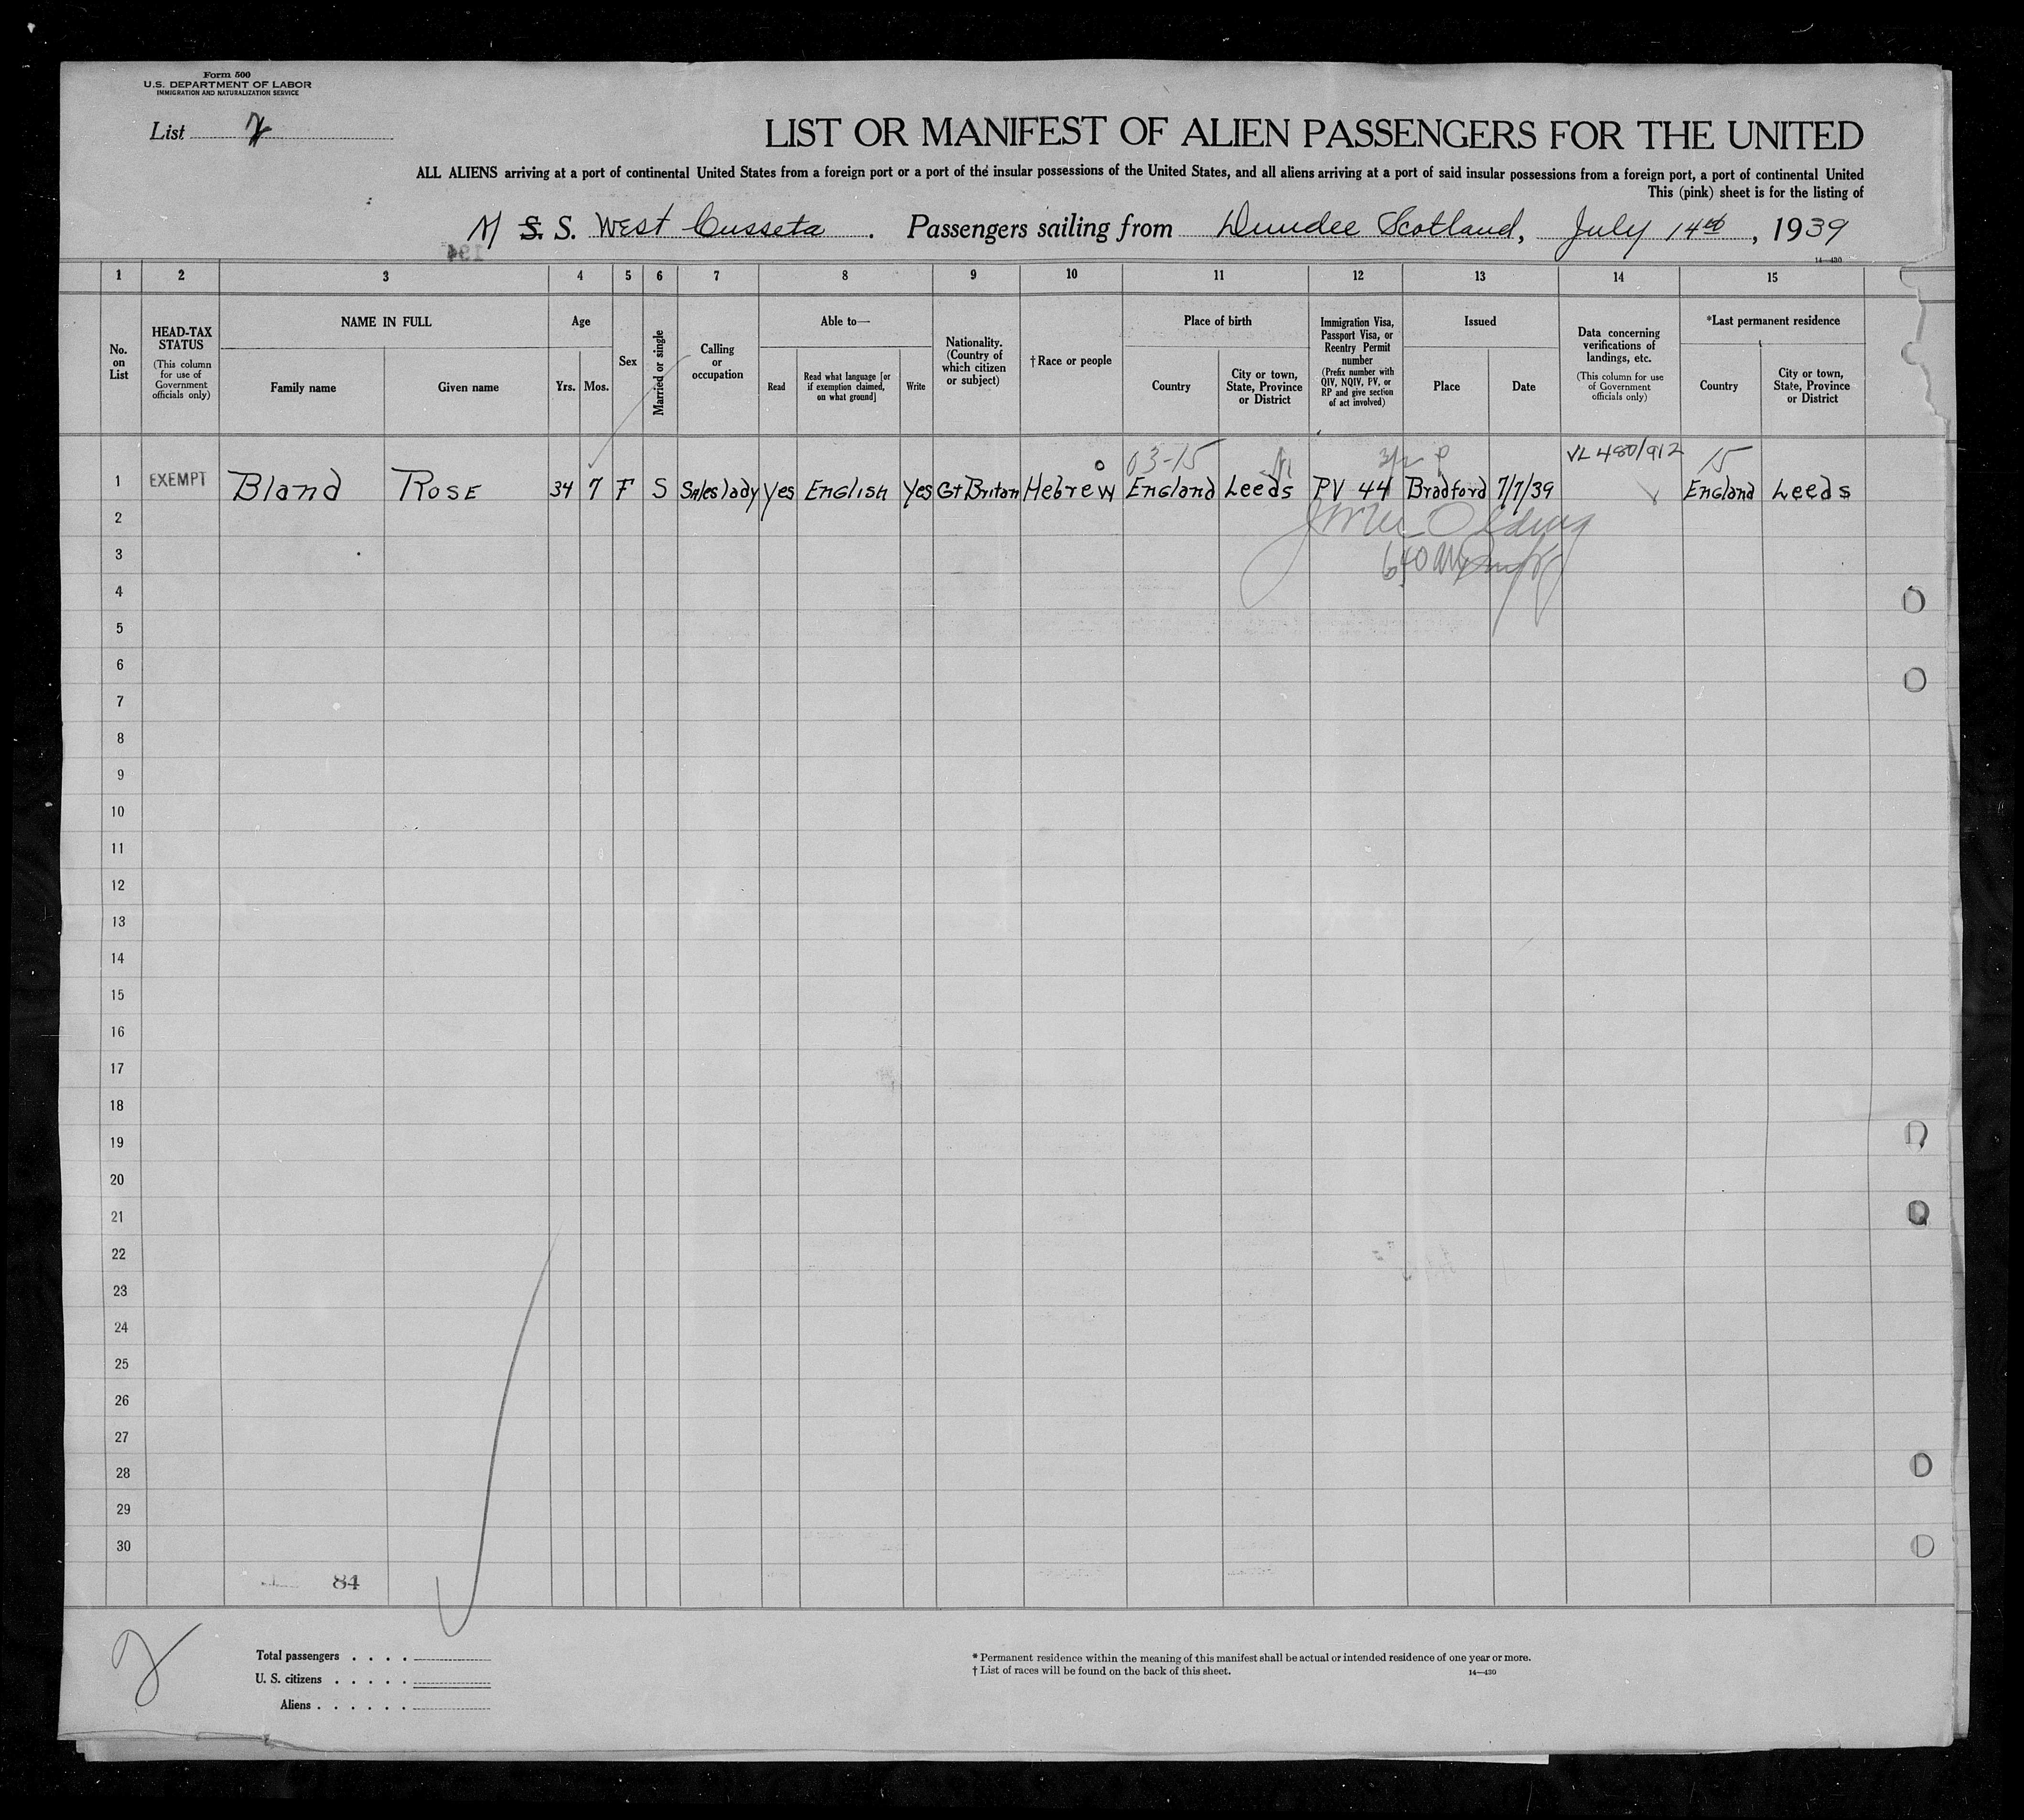 Form 500
U.S. DEPARTMENT OF LABOR
IMMIGRATION AND NATURALIZATION SERVICE
List 2
LIST OR MANIFEST OF ALIEN PASSENGERS FOR THE UNITED
ALL ALIENS arriving at a port of continental United States from a foreign port or a port of the insular possessions of the United States, and all aliens arriving at a port of said insular possessions from a foreign port, a port of continental United
This (pink) sheet is for the listing of
S. S. West Cusseta . Passengers sailing from Dundee Scotland, July 14th, 1939
14—430
1 2 3 4 5 6 7 8 9 10 11 12 13 14 15
No. on List
HEAD-TAX STATUS
(This column for use of Government officials only)
NAME IN FULL
Family name
Given name
Age
Yrs.
Mos.
Sex
Married or single
Calling or occupation
Able to—
Read
Read what language [or if exemption claimed, on what ground]
Write
Nationality. (Country of which citizen or subject)
†Race or people
Place of birth
Country
City or town, State, Province or District
Immigration Visa, Passport Visa, or Reentry Permit number
(Prefix number with QIV, NQIV, PV, or RP and give section of act involved)
Issued
Place
Date
Data concerning verifications of landings, etc.
(This column for use of Government officials only)
*Last permanent residence
Country
City or town, State, Province or District
03-15 VL 480/912 15
1 EXEMPT Bland Rose 34 7 F S Saleslady Yes English Yes Gt Britan Hebrew England Leeds PV 44 Bradford 7/7/39 England Leeds
2
3
4
5
6
7
8
9
10
11
12
13
14
15
16
17
18
19
20
21
22
23
24
25
26
27
28
29
30
84
2
Total passengers . . . .
U. S. citizens . . . . .
Aliens . . . . . .
* Permanent residence within the meaning of this manifest shall be actual or intended residence of one year or more.
† List of races will be found on the back of this sheet.
14—430